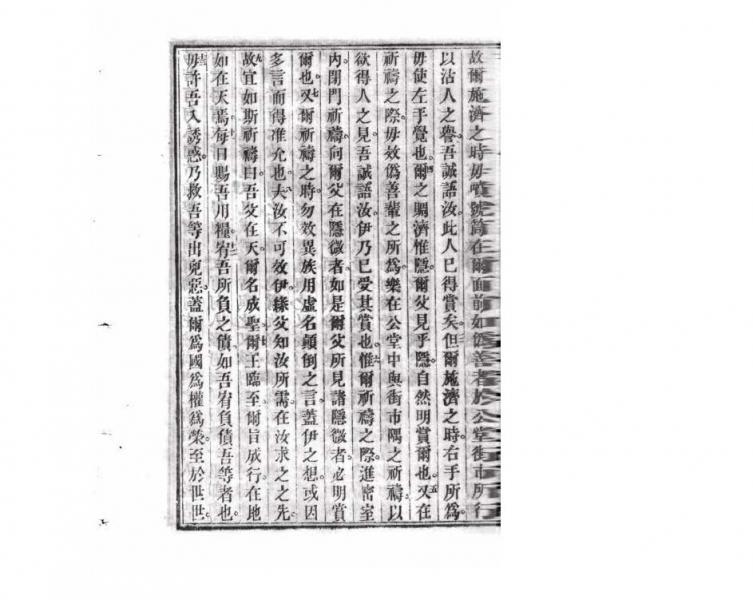 故爾施濟之時毋噴號筒在爾面前如僞善者於公堂街市所行
以沾人之譽吾誠語汝此人已得賞矣但爾施濟之時右手所爲
毋使左手覺也爾之賙濟惟隱爾父見乎隱自然明賞爾也又在
祈禱之際毋效僞善輩之所爲樂在公堂中與街市隅之祈禱以
欲得人之見吾誠語汝伊乃已受其賞也惟爾祈禱之際進密室
內閉門祈禱向爾父在隱微者如是爾父所見諸隱微者必明賞
爾也又爾祈禱之時勿效異族用虛名顛倒之言蓋伊之想或因
多言而得准允也夫汝不可效伊緣父知汝所需在汝求之之先
故宜如斯祈禱曰吾父在天爾名成聖爾王臨至爾旨成行在地
如在天焉每日賜吾用糧宥吾所負之債如吾宥負債吾等者也
毋許吾入誘惑乃救吾等出兇惡蓋爾爲國爲權爲榮至於世世